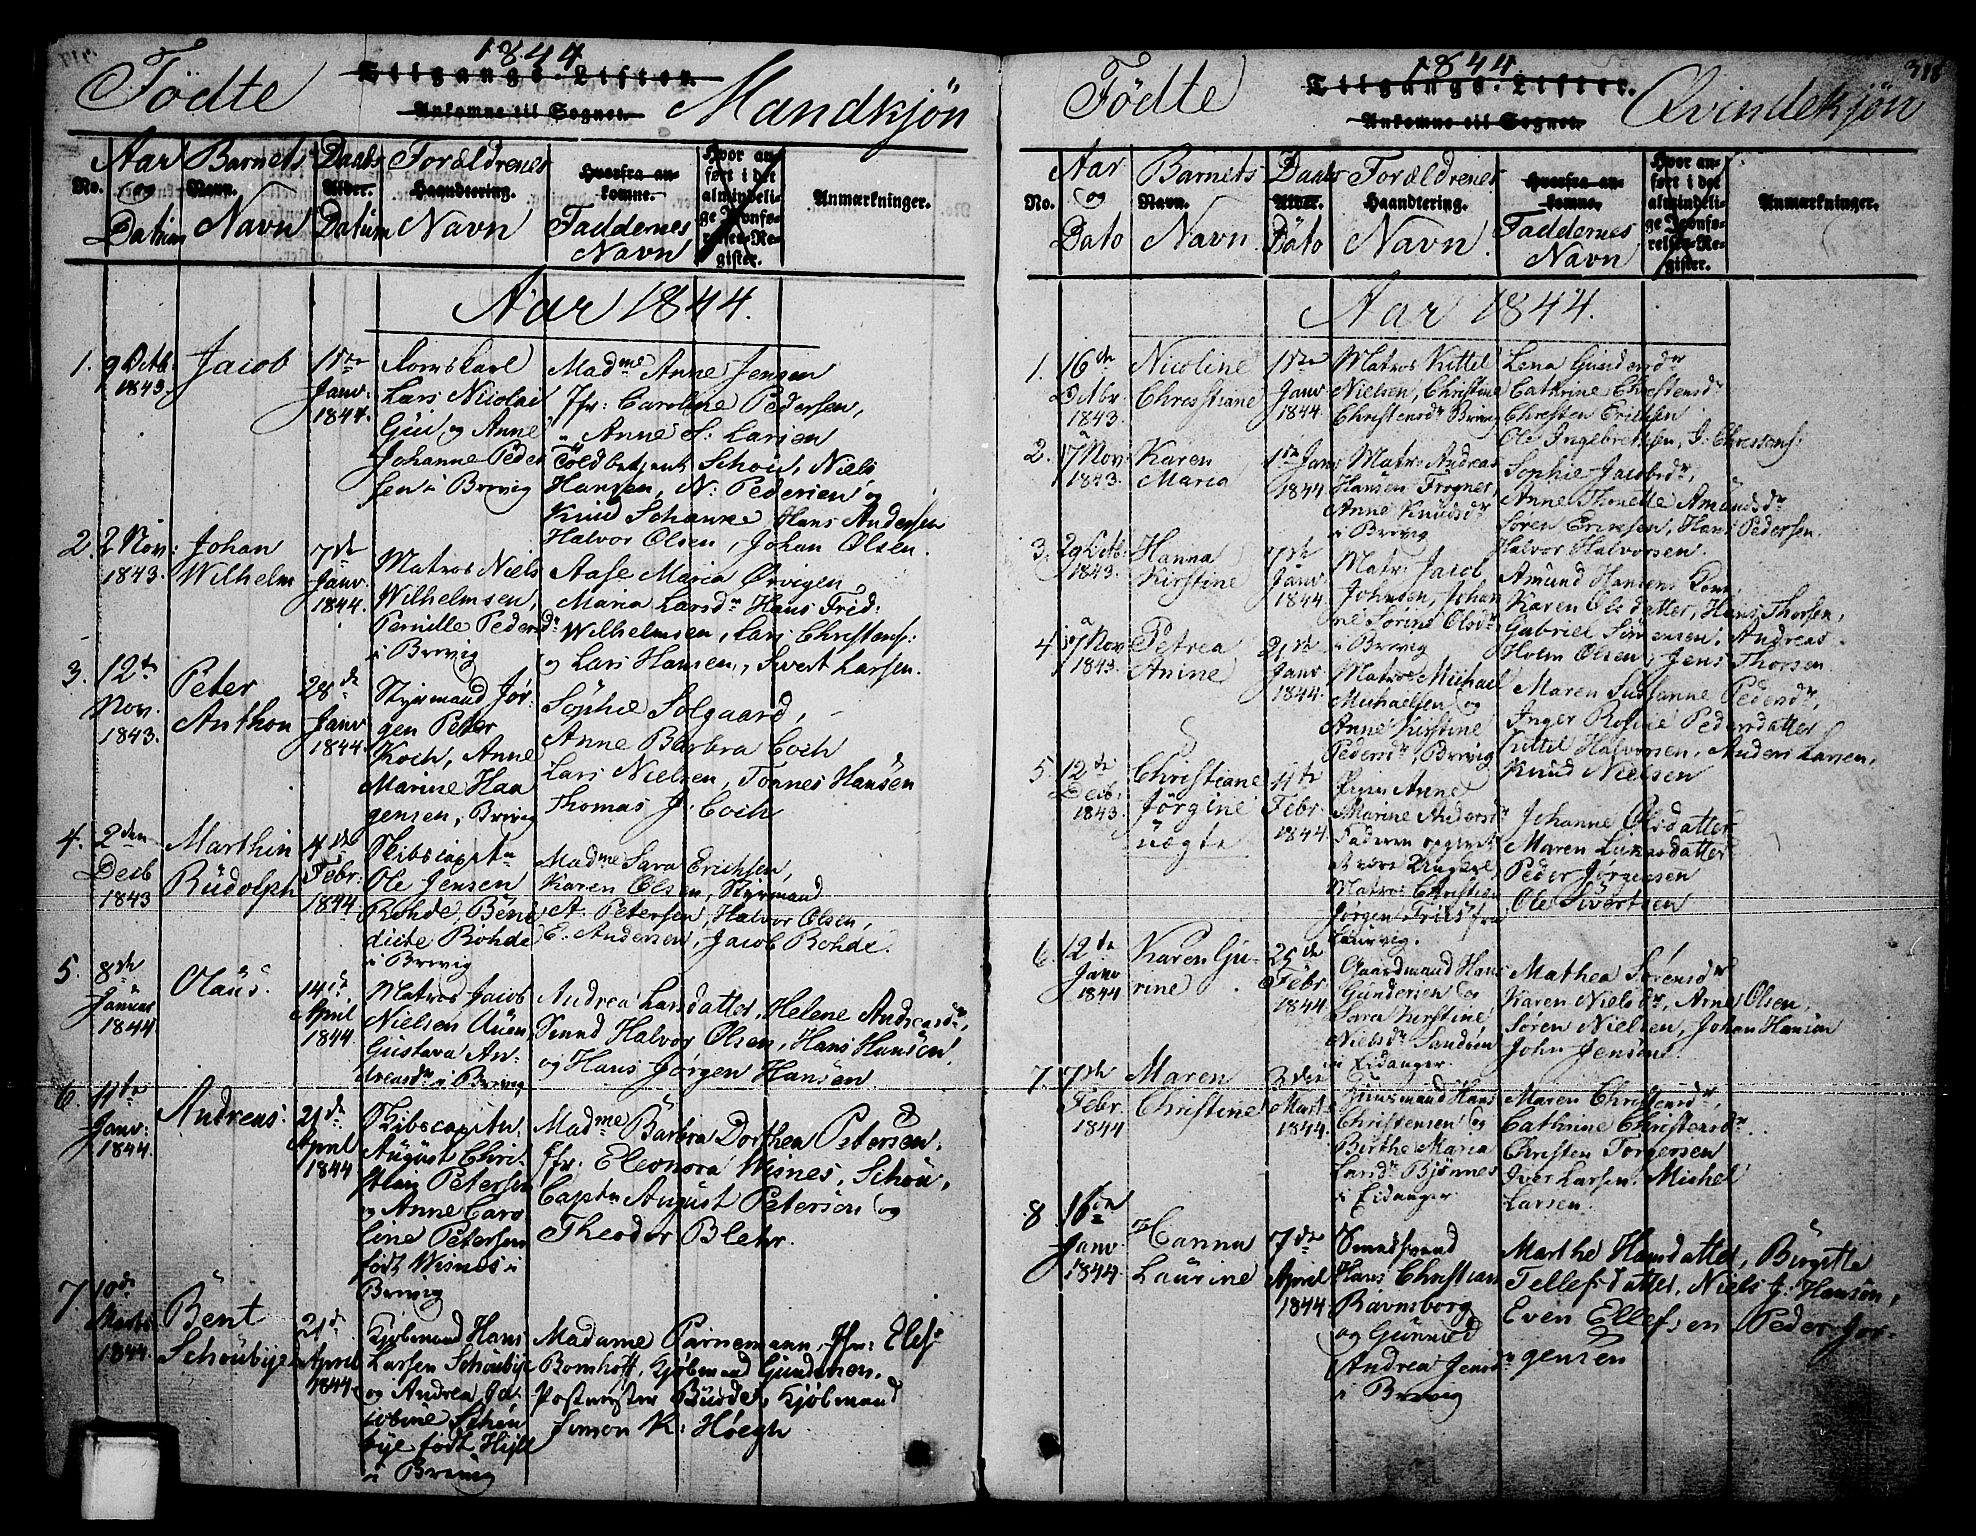 1844
Fødte Tilgangs-Lister. Mandkjøn
Ankomne til Sognet.
No. Aar og Datum
Barnets Navn. Navn
Daabs Alder. Datum
Forældrenes Haandtering. Navn
Hvorfra ankomne. Faddernes Navn
Hvor anført i det almindelige Jevnførelses-Register.
Anmærkninger.
Aar 1844.
1. 9 Octb. 1843.
Jacob
1ste Janv. 1844.
Lars Nicolai
og Anne
Johanne Peder
sen i Brevig
Madme Anne Jensen
Jfr: Caroline Pedersen,
" Anne S: Larsen
Toldbetjent Schou, Niels
Hansen, N: Pedersen og
Knud Schanke, Hans Andersen
Halvor Olsen, Johan Olsen.
2. 2 Nov: 1843.
Johan
Wilhelm
7de Janv. 1844.
Matros Niels
Wilhelmsen,
Pernille Pedersdr
i Brevig
Aase Maria Ørvigen
Maria Larsdr Hans Frid:
Wilhelmsen, Lars Christens:
og Lars Hansen, Sivert Larsen.
3. 12te Nov. 1843.
Peter
Anthon
28de Janv 1844.
Styrmand Jør-
gen Peter
Koch, Anne
Marine Haa
gensen, Brevig
Sophie Solgaard,
Anne Barbra Coch
Lars Nielsen, Tønnes Hansen
Thomas J. Coch
4. 2den Decb 1843
Marthin
Rudolph
4de Febr: 1844.
Skibscaptn
Ole Jensen
Rohde, Bene
dicte Rohde
i Brevig
Madme Sara Erichsen,
Karen Olsen, Styrmand
A. Petersen, Halvor Olsen,
E. Andersen, Jacob Rohde.
5. 8de Januar 1844.
Olaus.
14de April 1844
Matros Jacob
Nielsen Auen
Gustava An-
dreasdr i Brevig
Andrea Larsdatter, Helene Andreasdr,
Smed Halvor Olsen, Hans Hansen
og Hans Jørgen Hansen
6. 11te Janv: 1844.
Andreas.
21de April 1844
Skibscaptn.
August Chri-
stian Petersen
og Anne Caro
line Petersen
født Wisnes i
Brevig
Madme Barbra Dorthea Petersen,
Jfr: Eleonora Wisnes, Schou,
Captn August Petersen og
Theodor Blehr.
7. 10de Marts 1844.
Bent
Schoubye
21de April 1844
Kjøbmand Hans
Larsen Schoubye
og Andrea Ja-
cobine Schou
bye født
i Brevig
Madame Parnemann, Jfr: Elef
Bomhoff, Kjøbmand Gundersen,
Postmester Budde, Kjøbmand
Simon K: Høegh
1844. 318
Fødte Tilgangs-Lister. Qvindekjøn
Ankomne til Sognet.
No. Aar og Dato
Barnets Navn. Navn.
Daabs Alder. Dato
Forældrenes Haandtering. Navn.
Hvorfra ankomne. Faddernes Navn
Hvor anført i det almindelige Jevnførelses-Register.
Anmærkninger.
Aar 1844.
1. 16de Octbr. 1843.
Nicoline
Christiane
1ste Janv 1844.
Matros Kittel
Nielsen, Christine
Christensdr Brevig
Lena Gundersdr
Cathrine Christensdr
Christen Eriksen
Ole Ingebretsen, J: Christens:
2. 17 Nov: 1843.
Karen
Maria
1ste Janv 1844
Matr: Andreas
Hansen Frogner,
Anne Knudsdr
i Brevig
Sophie Jacobsdr,
Anne Thonette Amundsdr
Søren Eriksen, Hans Pedersen.
Halvor Halvorsen.
3. 29 Octb: 1843.
Hanna
Kirstine
7de Janv 1844.
Matr: Jacob
Johnsen, Johan
ne Sørine Olsdr
i Brevig
Amund Hansens Kone,
Karen Olsdatter, Hans Thorsen,
Gabriel Simensen, Andreas
Holm Olsen, Jens Thorsen
4. 17 Nov 1843.
Petrea
Anine
21de Janv 1844.
Matros Michael
Michaelsen og
Anne Kirstine
Pedersdr, Brevig
Maren Susanne Pedersdr,
Inger Rosine Pedersdatter
Kittel Halvorsen, Anders Larsen,
Knud Nielsen
5. 12te Decb. 1843.
Christiane
Jørgine
uægte
4de Febr 1844.
Pigen Anne
Marine Andersdr
Faderen opgivet
at være Ungkarl
Matros Christian
Jørgen Friis fra
Laurvig.
Johanne Olsdatter
Maren Lukasdatter
Peder Jørgensen
Ole Sivertsen
6. 12te Janv 1844
Karen Gu-
rine
25de Febr 1844
Gaardmand Hans
Gundersen og
Sara Kirstine
Nielsdr Sandøen
i Eidanger.
Mathea Sørensdr
Karen Nielsdr, Arne Olsen,
Søren Nielsen, Johan Hansen
John Jensen.
7. 7de Febr. 1844
Maren
Christine
3die Mart 1844.
Huusmand Hans
Christensen og
Birthe Maria
Larsdr Bjønnes
i Eidanger
Maren Christensdr,
Cathrine Christensdr.
Christen Torgersen
Iver Larsen, Michel
Larsen.
8. 16de Janv 1844.
Hanna
Laurine
7de April 1844.
Smedsvend
Hans Christian
Ravnsborg
og Gunnild
Andrea Jensdr
i Brevig
Marthe Hansdatter, Birgitte
Tellefsdatter, Niels J. Hansen,
Even Ellefsen Peder Jør-
gensen